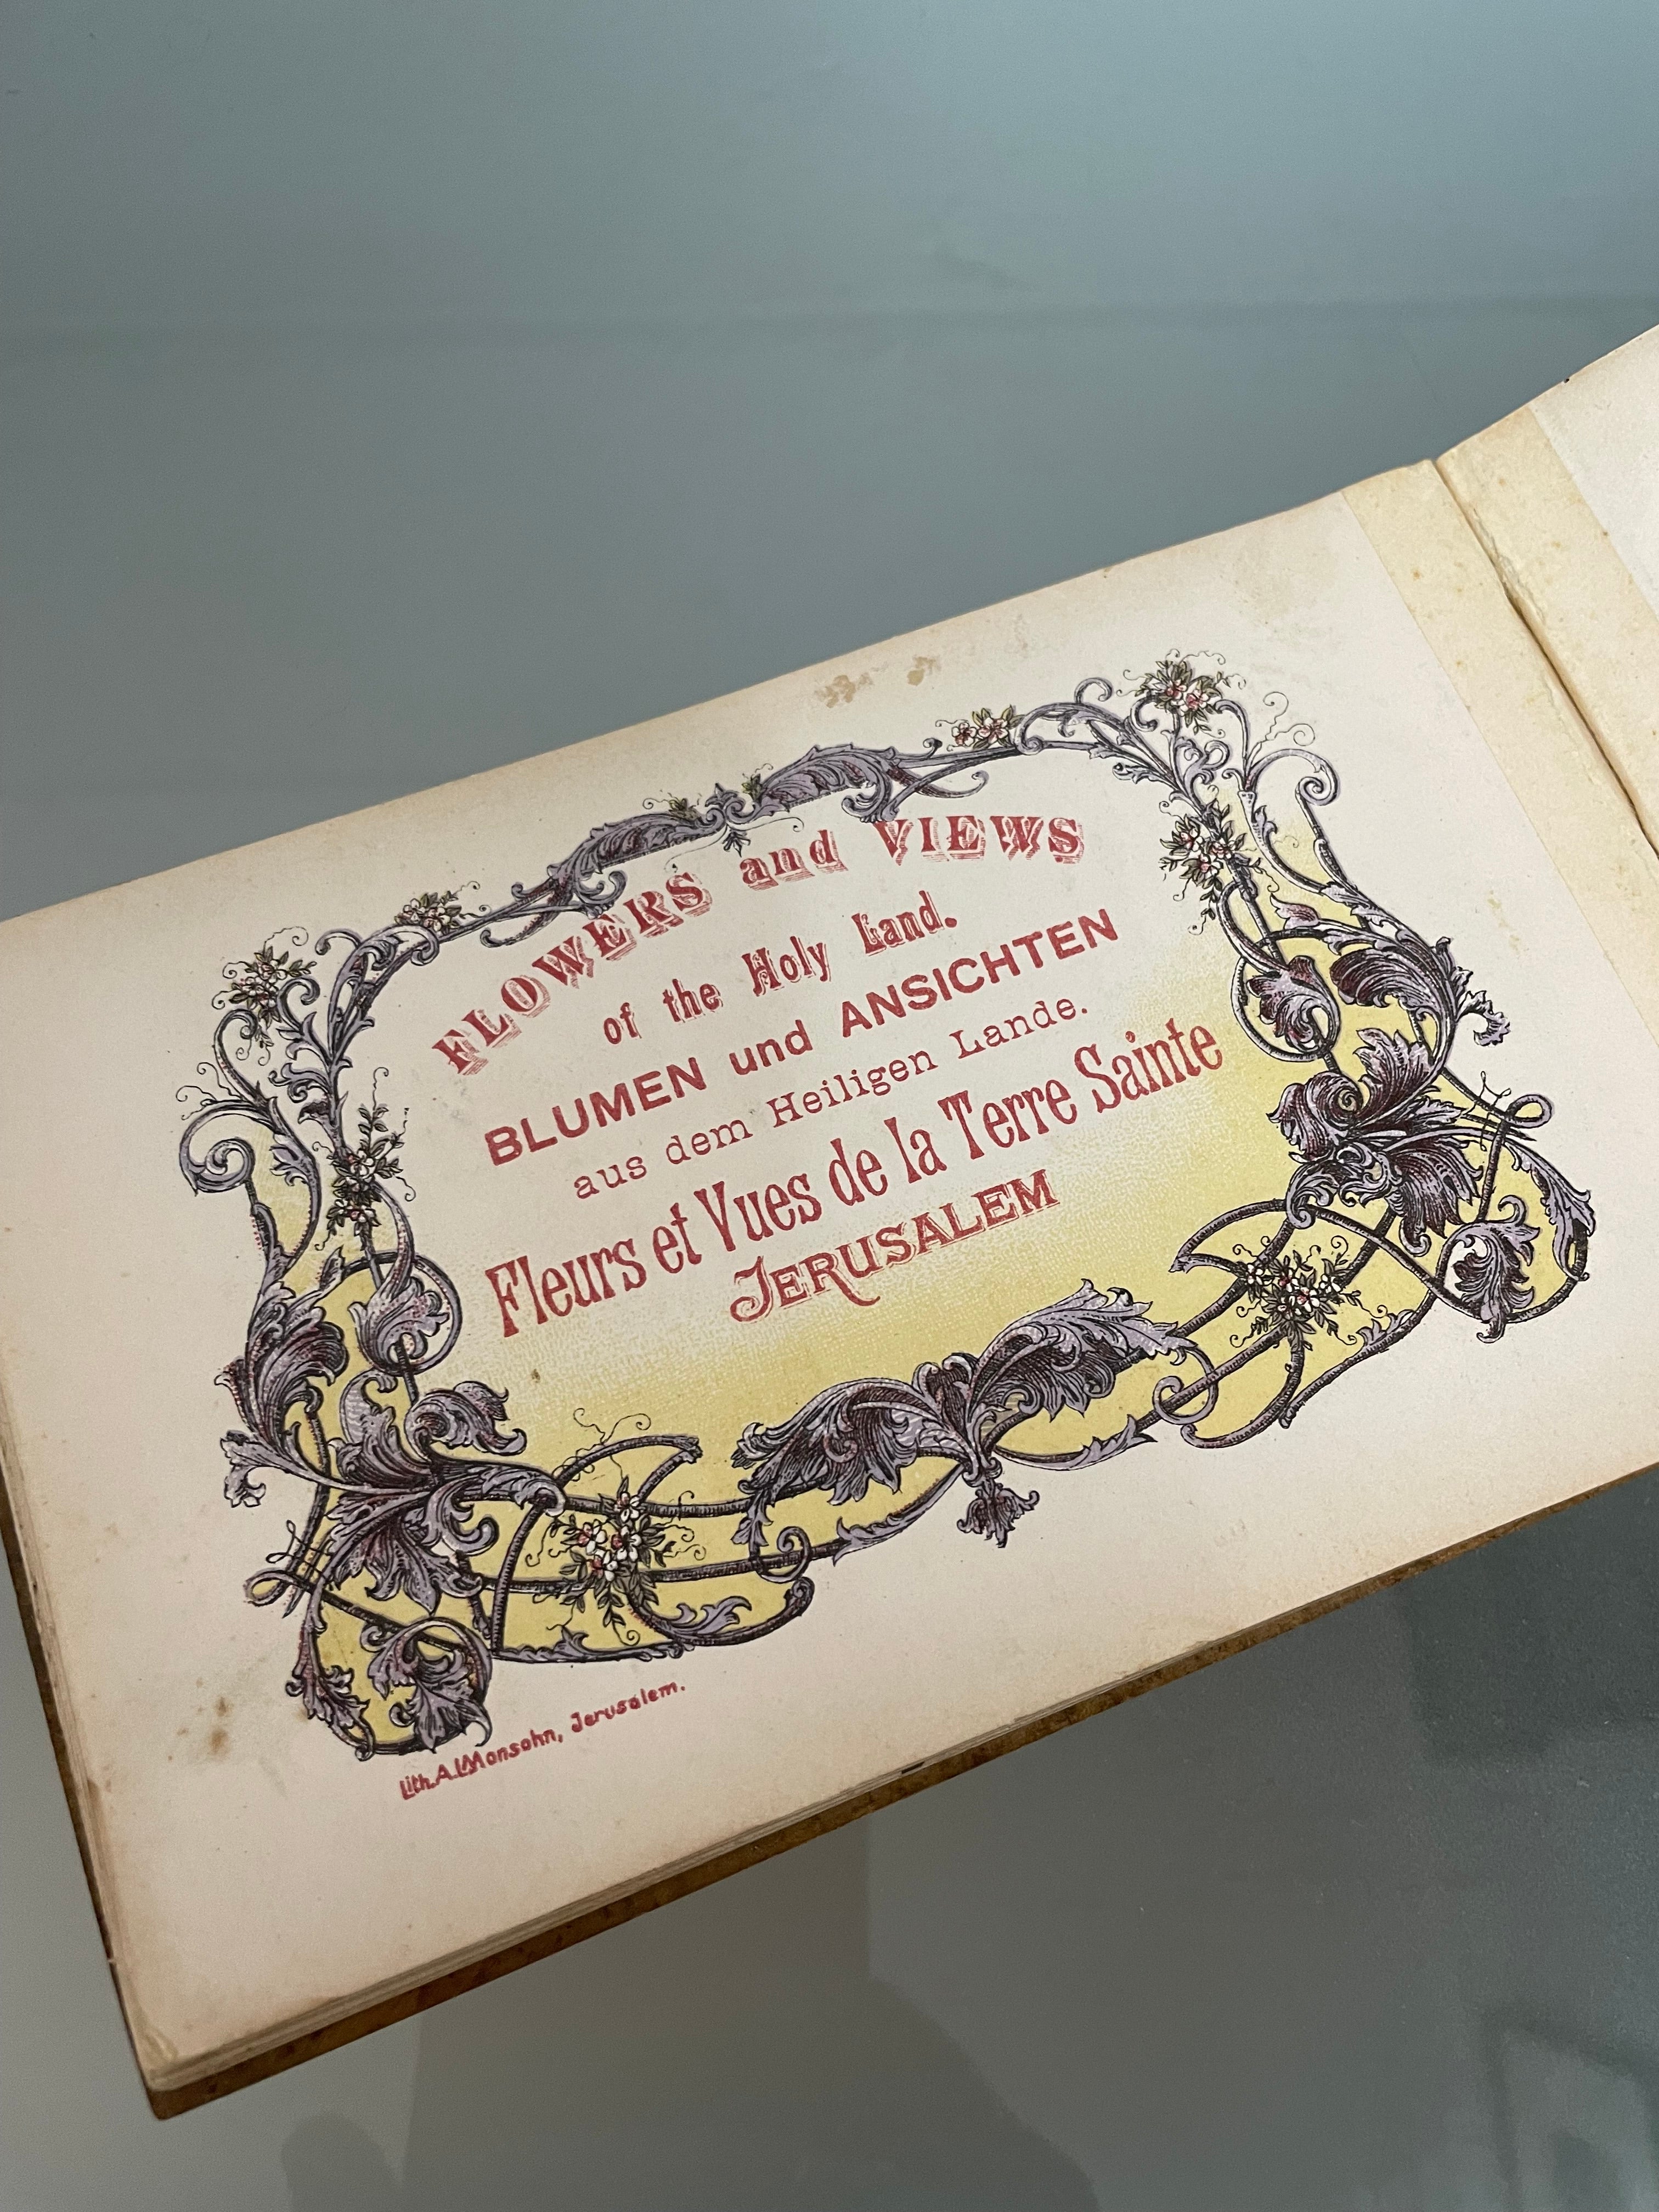 FLOWERS and VIEWS
of the Holy Land.
BLUMEN und ANSICHTEN
aus dem Heiligen Lande.
Fleurs et Vues de la Terre Sainte
JERUSALEM
Lith. A. L. Monsohn, Jerusalem.